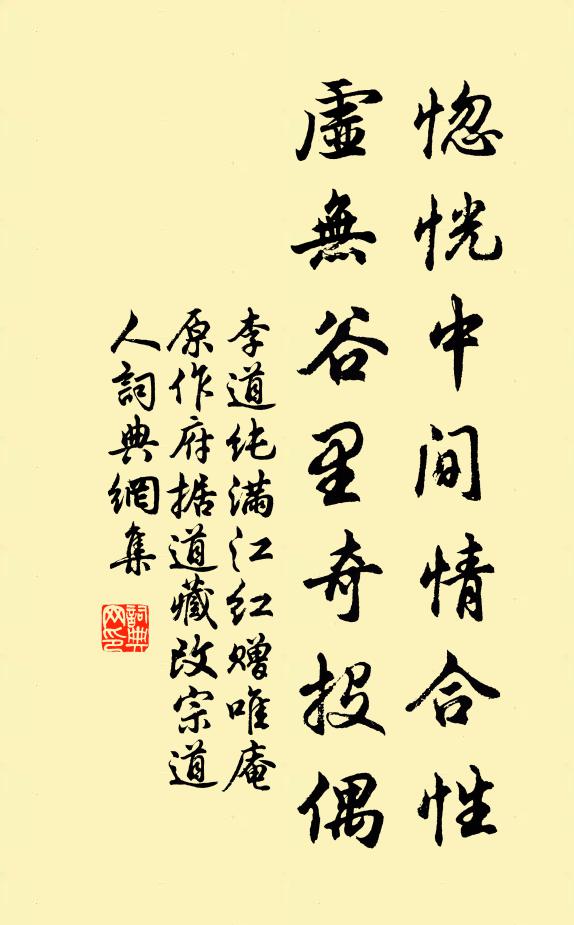 惚恍中間情合性
虛無谷里奇投偶
李道純滿江紅赠唯庵
原作府据道藏改宗道
人詞典網集
詞典網印